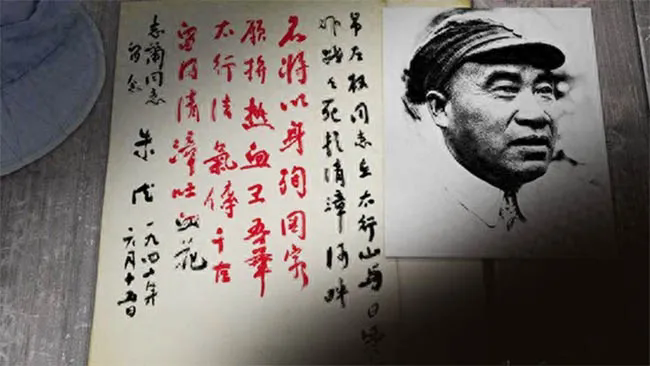 吊左权同志在太行山与日
作战々死於清漳河畔
名将以身殉国家
願拚热血卫吾華
太行浩氣传千古
留得清漳吐血花
志蘭同志
留念
朱德
一九四二年
六月十五日